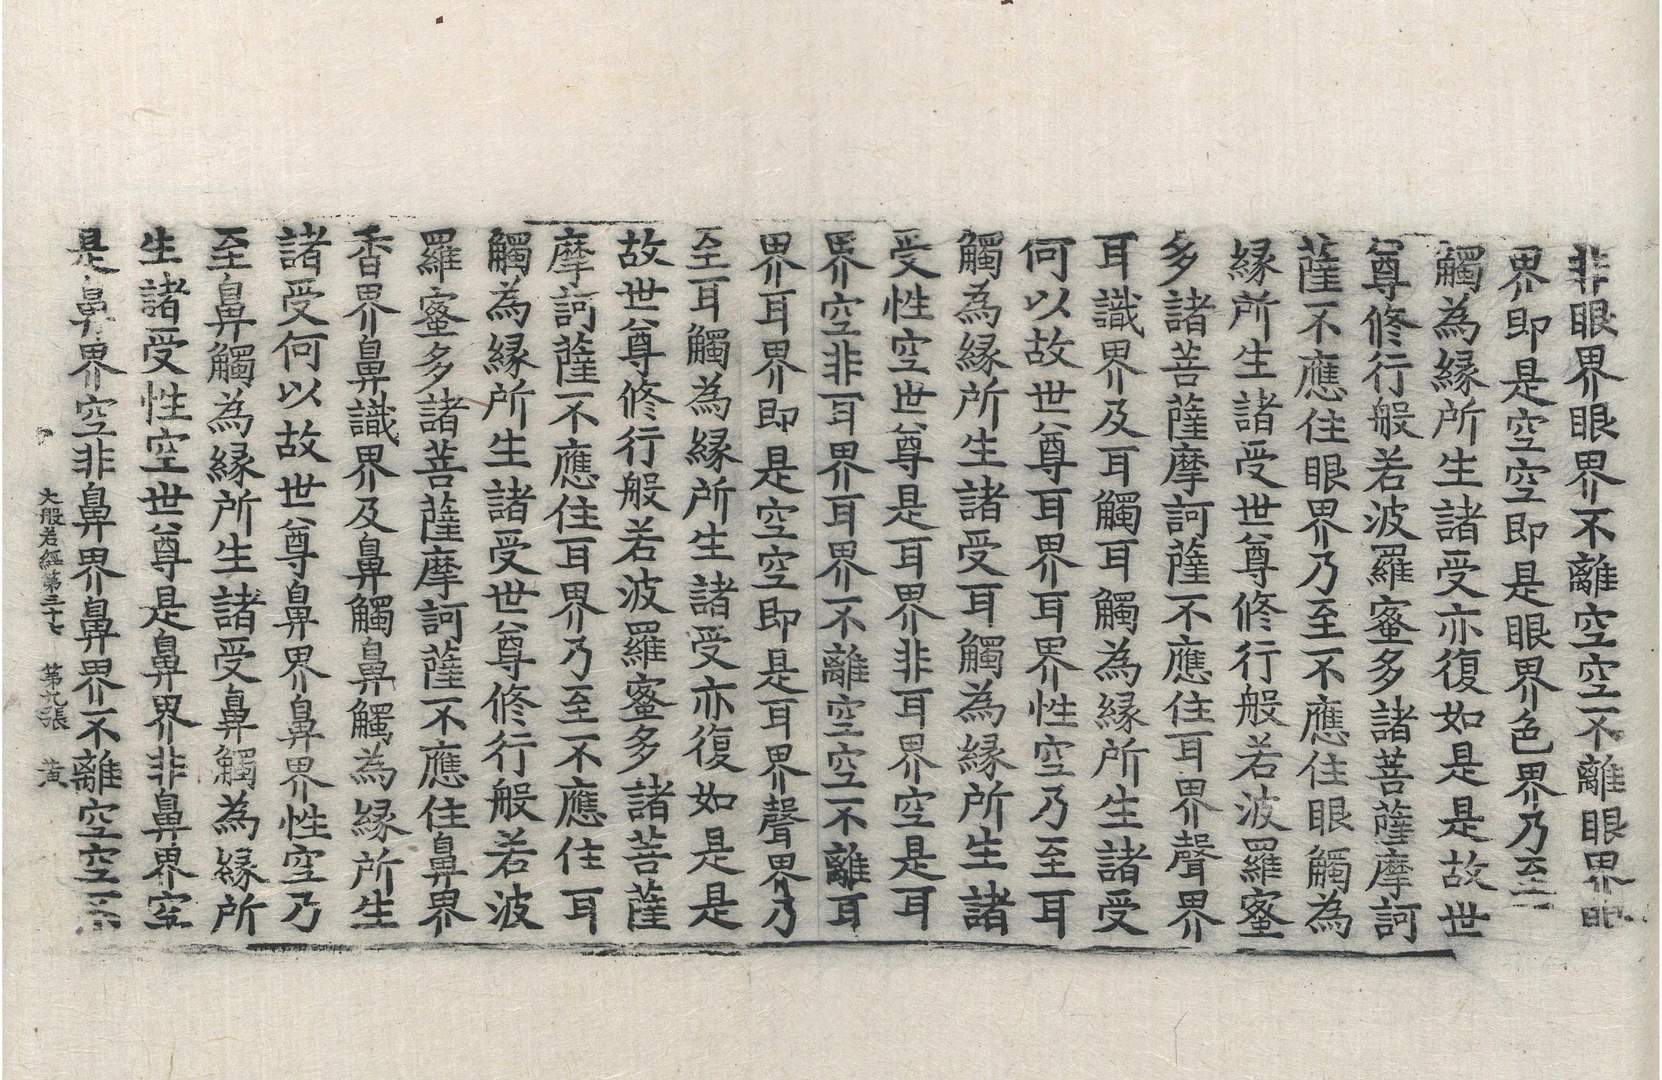 非眼界眼界不離空空不離眼界眼
界即是空空即是眼界色界乃至
觸為縁所生諸受亦復如是是故世
尊修行般若波羅蜜多諸菩薩摩訶
薩不應住眼界乃至不應住眼觸為
縁所生諸受世尊修行般若波羅蜜
多諸菩薩摩訶薩不應住耳界聲界
耳識界及耳觸耳觸為縁所生諸受
何以故世尊耳界耳界性空乃至耳
觸為縁所生諸受耳觸為縁所生諸
受性空世尊是耳界非耳界空是耳
界空非耳界耳界不離空空不離耳
界耳界即是空空即是耳界聲界乃
至耳觸為縁所生諸受亦復如是是
故世尊修行般若波羅蜜多諸菩薩
摩訶薩不應住耳界乃至不應住耳
觸為縁所生諸受世尊修行般若波
羅蜜多諸菩薩摩訶薩不應住鼻界
香界鼻識界及鼻觸鼻觸為縁所生
諸受何以故世尊鼻界鼻界性空乃
至鼻觸為縁所生諸受鼻觸為縁所
生諸受性空世尊是鼻界非鼻界空
是鼻界空非鼻界鼻界不離空空不
大般若經第三十七 第九張 黃